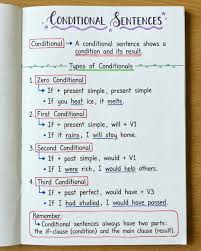 CONDITIONAL SENTENCES
Conditional → A conditional sentence shows a
condition and its result.
Types of Conditionals
1. Zero Conditional
↳ If + present simple, present simple
↳ If you heat ice, it melts.
2. First Conditional
↳ If + present simple, will + V1
↳ If it rains, I will stay home.
3. Second Conditional
↳ If + past simple, would + V1
↳ If I were rich, I would help others.
4. Third Conditional
↳ If + past perfect, would have + V3
↳ If I had studied, I would have passed.
Remember
↳ Conditional sentences always have two parts:
the if-clause (condition) and the main clause (result).